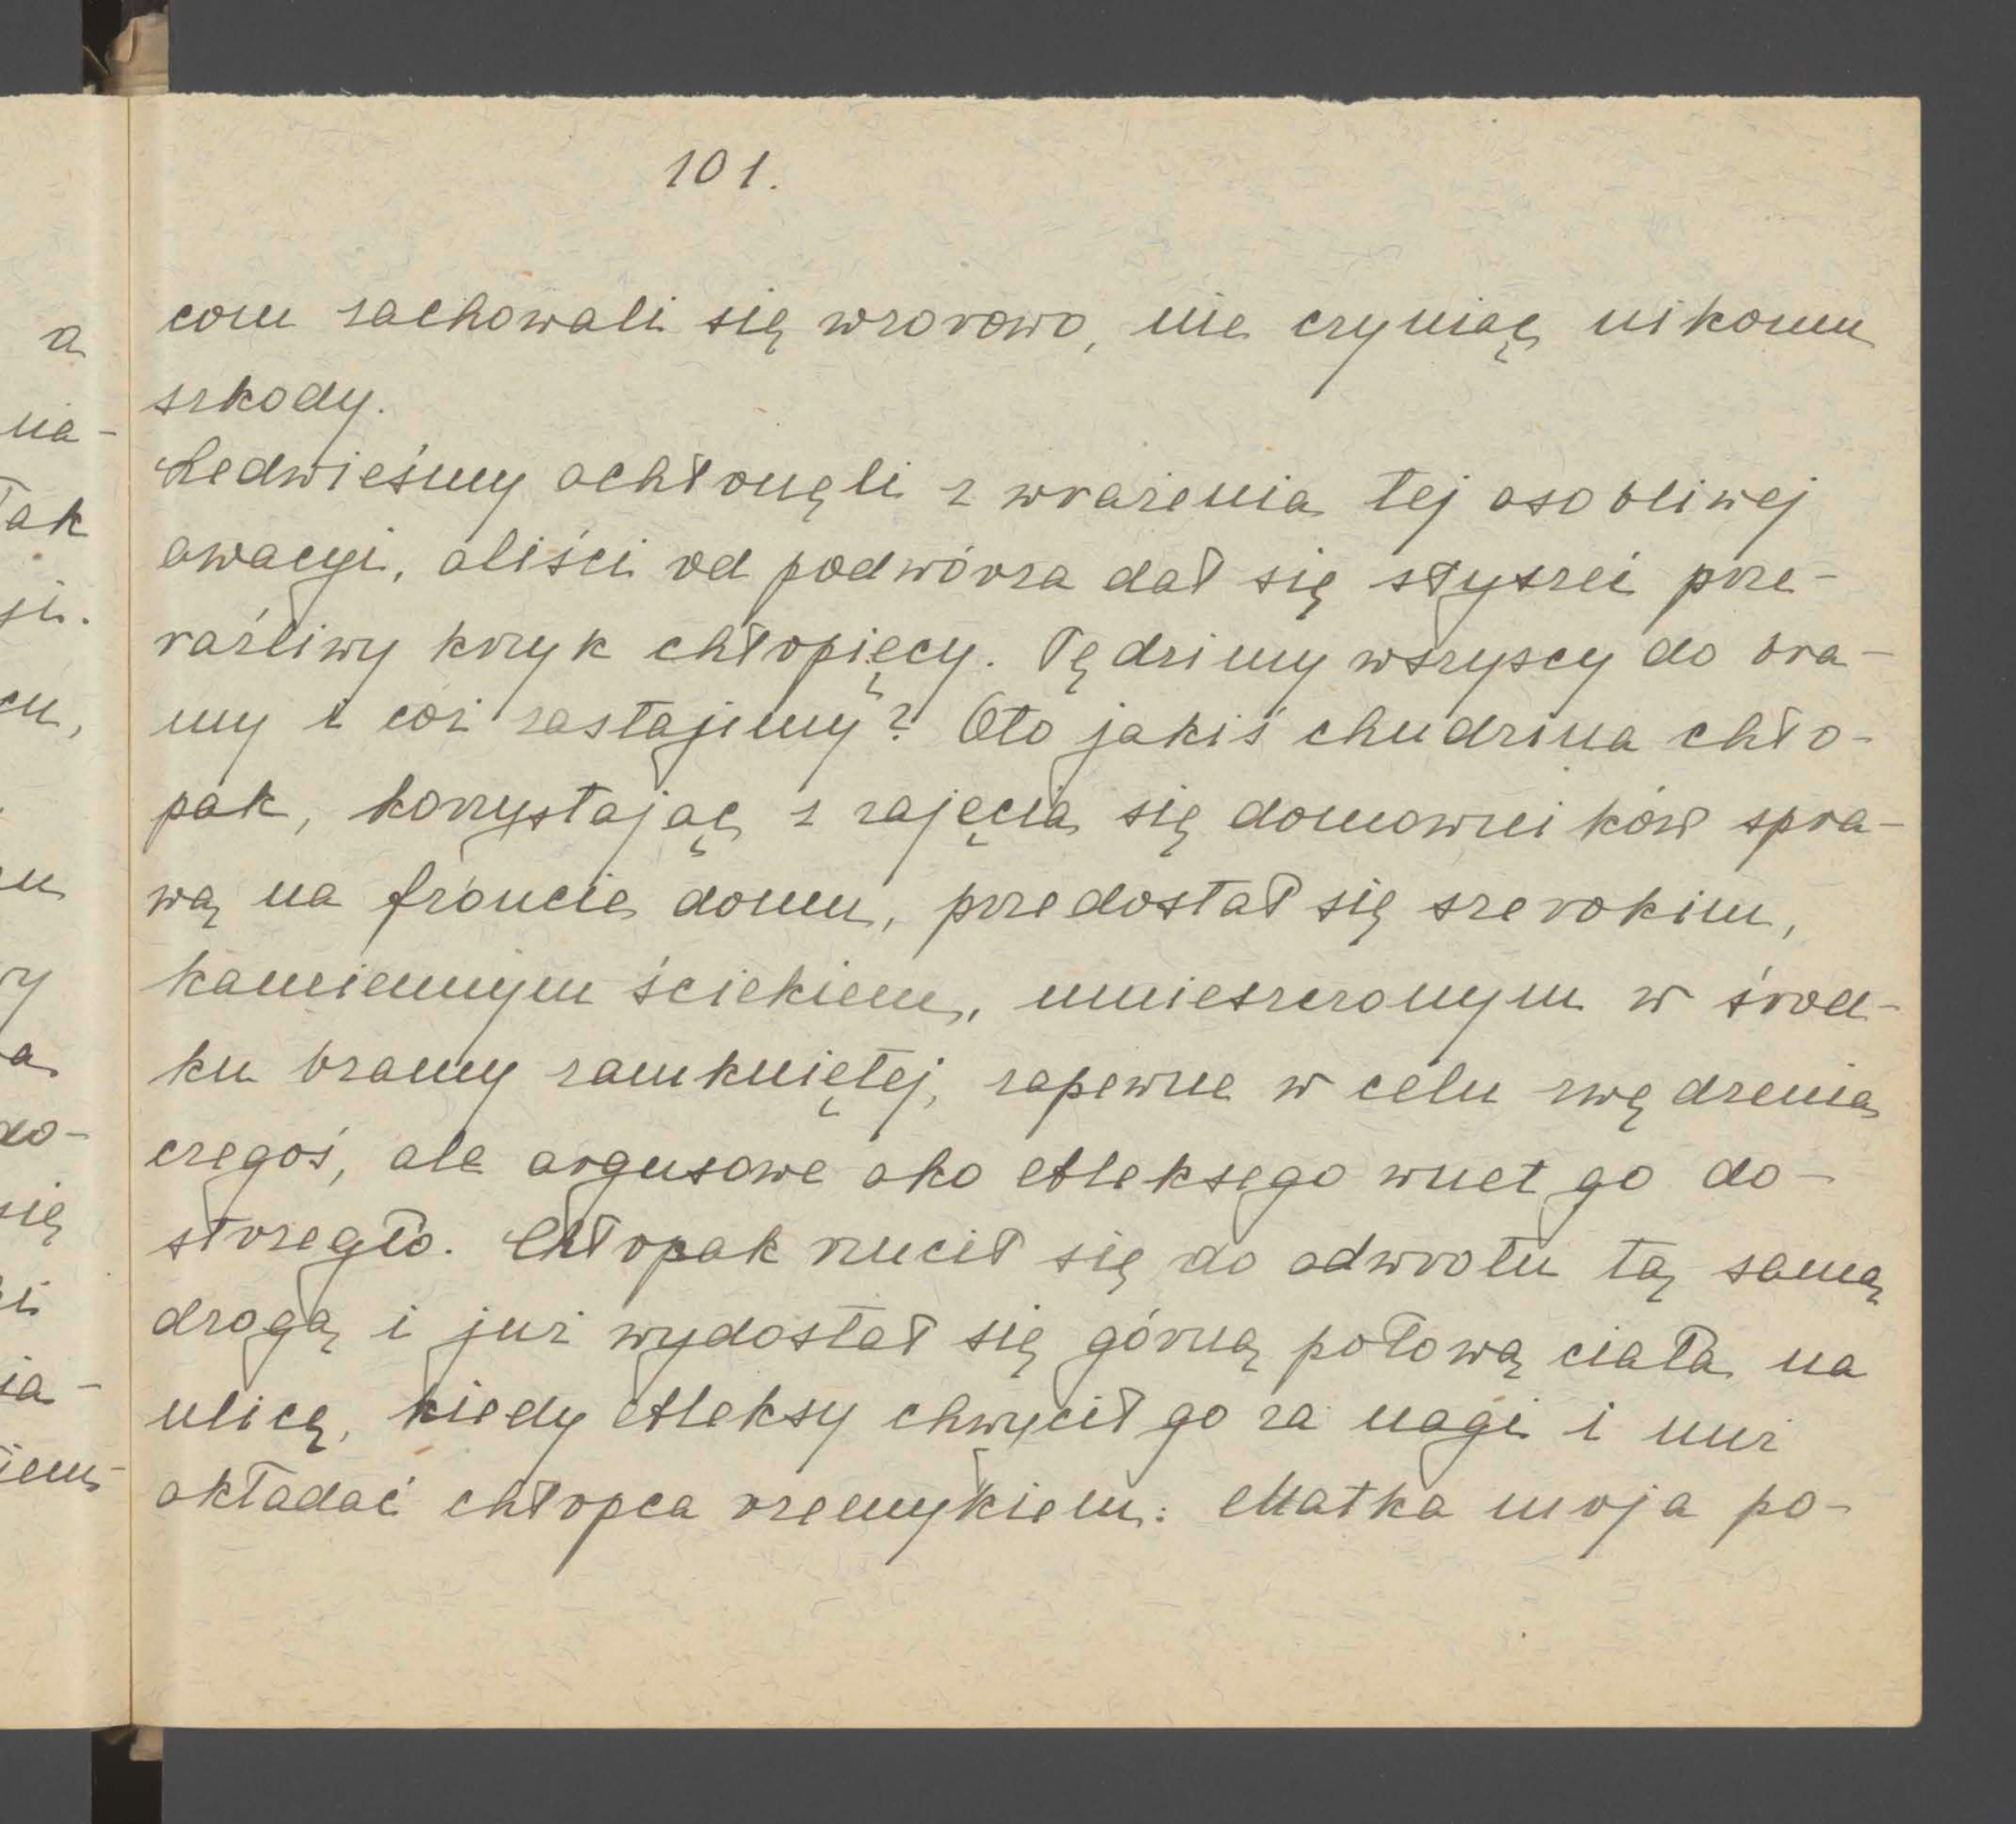 101.
com zachowali się wzorowo, nie czyniąc nikomu
szkody.
Ledwieśmy ochłonęli z wrażenia tej osobliwej
owacyi, aliści od podwórza dał się słyszeć prze-
raźliwy krzyk chłopięcy. Pędzimy wszyscy do bra-
my i cóż zastajemy? Oto jakiś chudzina chło-
pak, korzystając z zajęcia się domowników spra-
wą na froncie domu, przedostał się szerokim,
kamiennym ściekiem, umieszczonym w środ-
ku bramy zamkniętej, zapewne w celu zwędzenia
czegoś, ale argusowe oko Aleksego wnet go do-
strzegło. Chłopak rzucił się do odwrotu tą samą
drogą i już wydostał się górną połową ciała na
ulicę, kiedy Aleksy chwycił go za nogi i nuż
okładać chłopca rzemykiem. Matka moja po-
a
na-
Tak
ji.
cu,
ry
a
do-
się
ia-